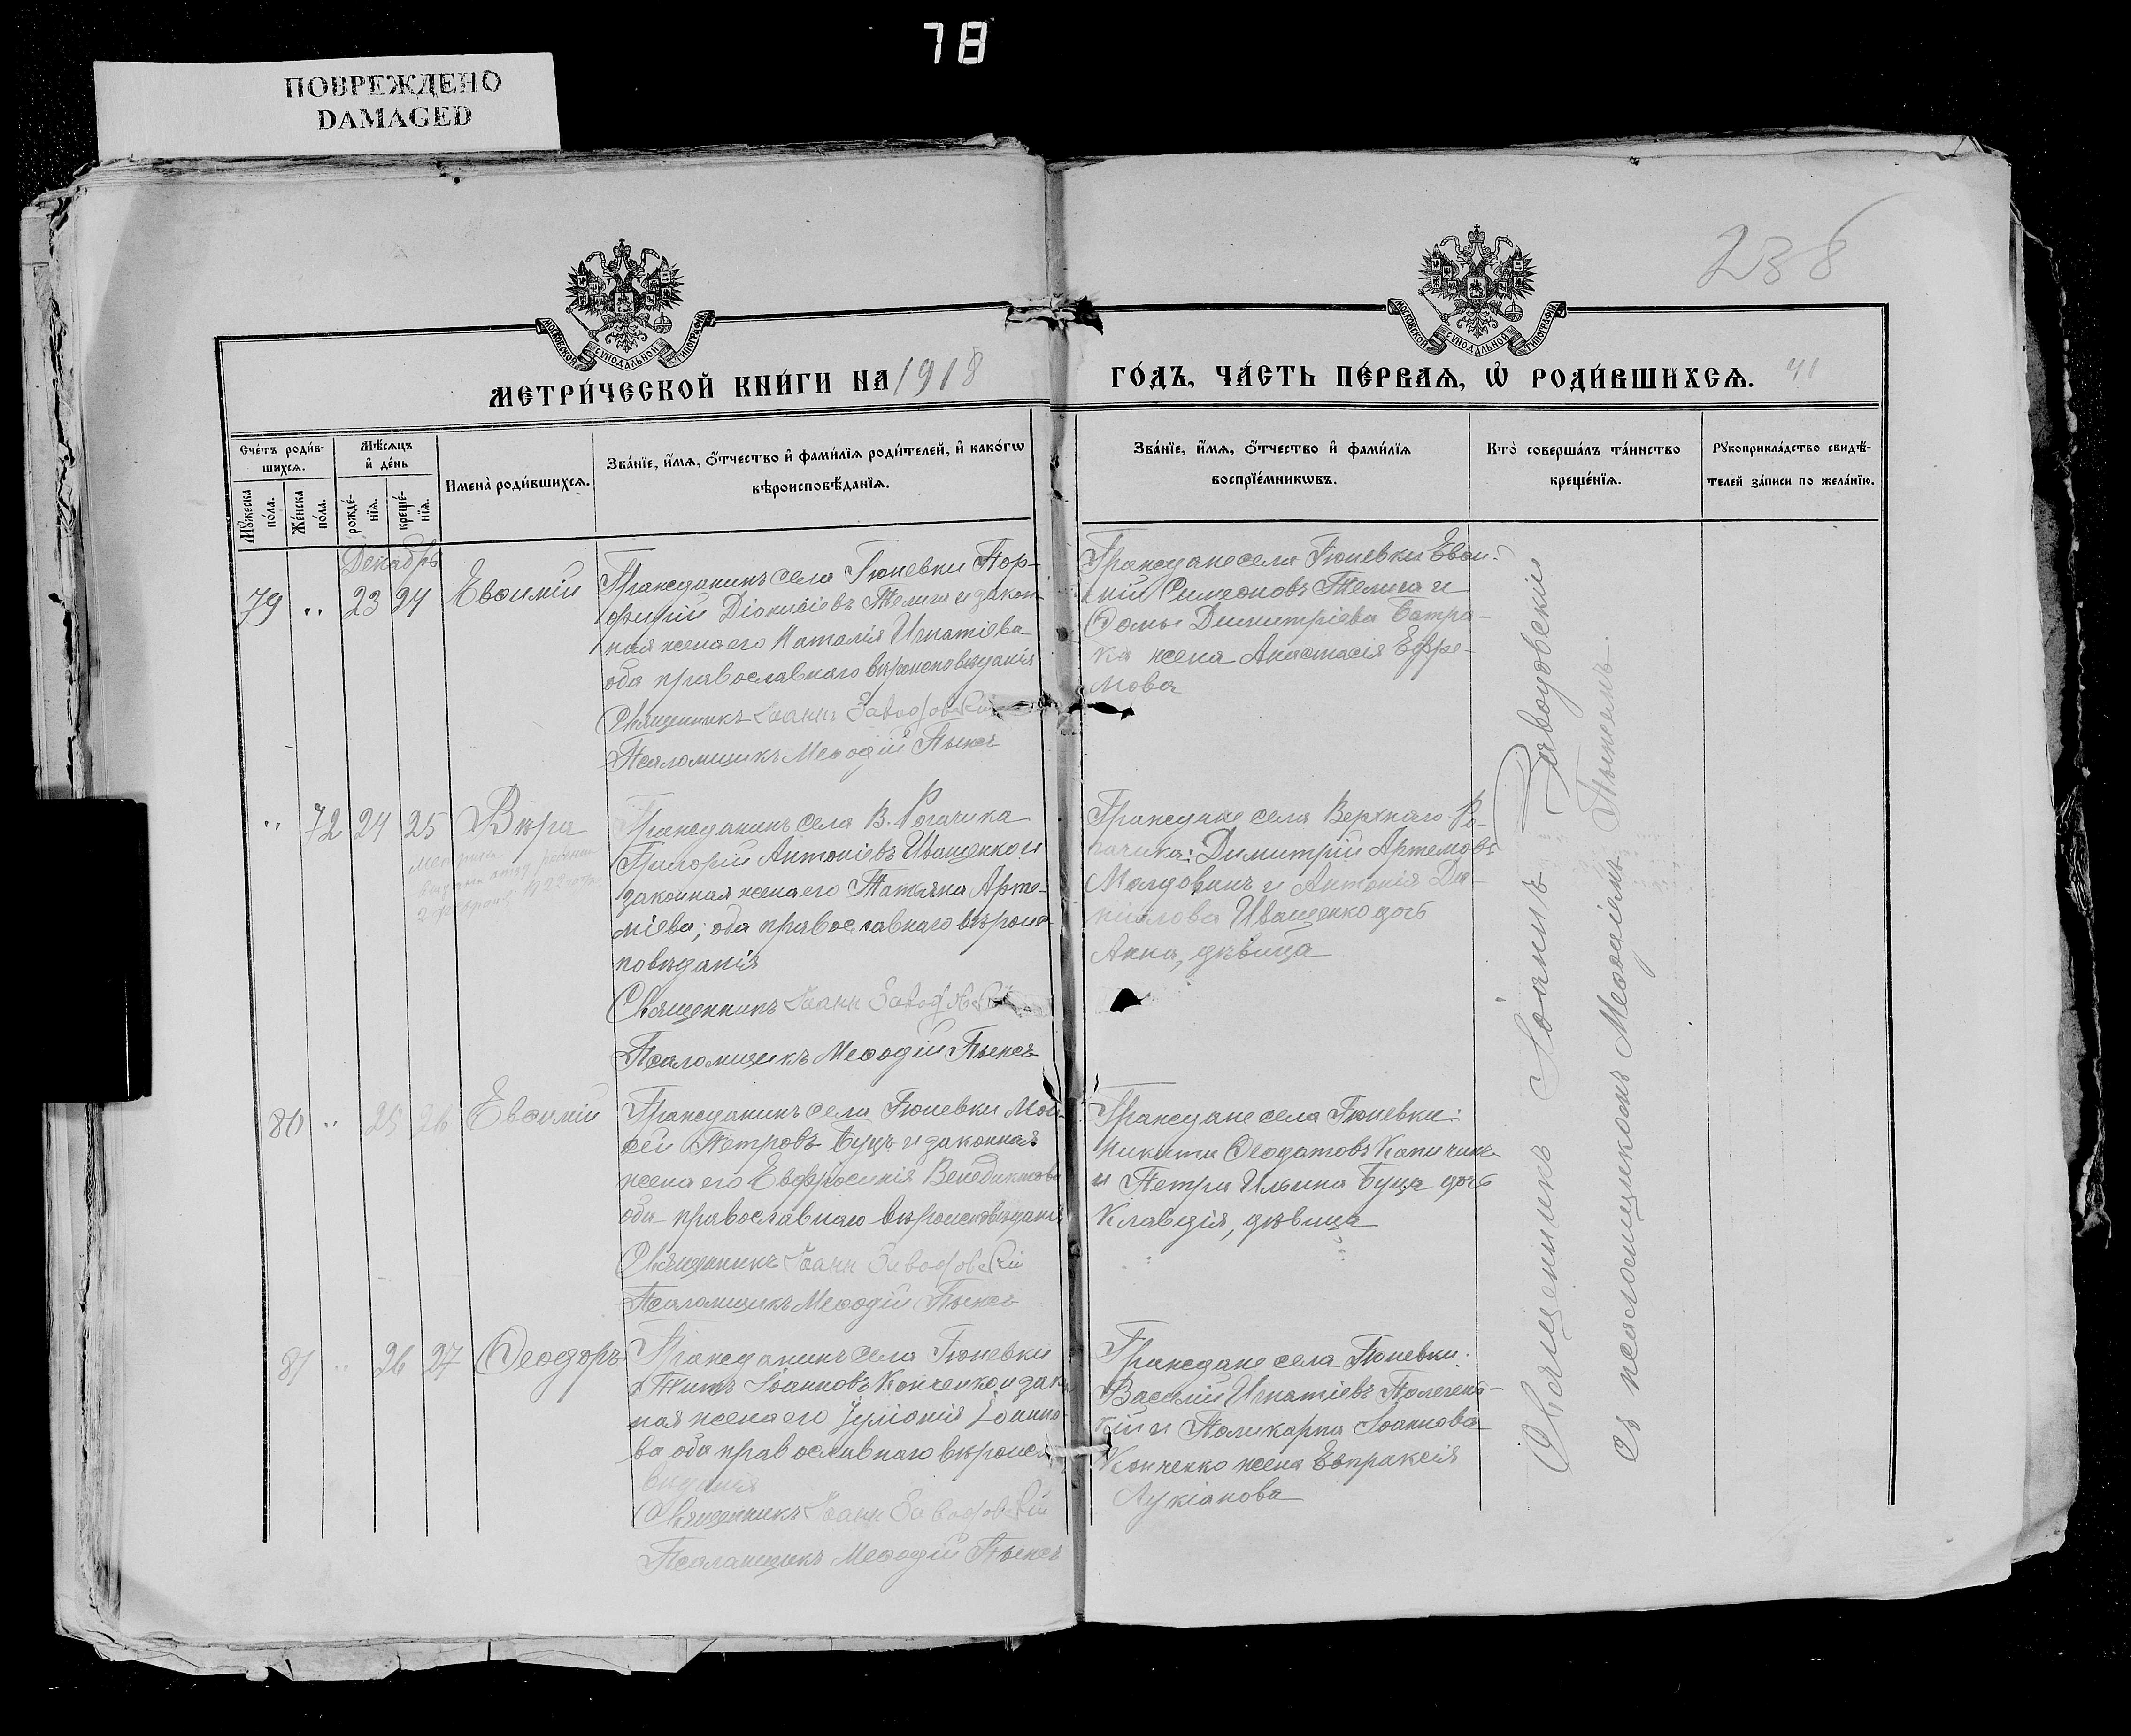 78
ПОВРЕЖДЕНО
DAMAGED
238
МОСКОВСКОЙ СѴНОДАЛЬНОЙ ТИПОГРАФІИ
МОСКОВСКОЙ СѴНОДАЛЬНОЙ ТИПОГРАФІИ
МЕТРИ́ЧЕСКОЙ КНИ́ГИ НА 1918 ГО́ДЪ, ЧА́СТЬ ПЕ́РВАѦ, Ѡ҆ РОДИ́ВШИХСѦ. 41
Сче́тъ роди́в-
шихсѧ.
Мꙋ́жеска по́ла.
Же́нска по́ла.
Мѣ́сѧцъ
и҆ де́нь
рожде́-
нїѧ.
креще́-
нїѧ.
Имена̀ роди́вшихсѧ.
Зва́нїе, и҆́мѧ, ѻ҆́тчество и҆ фами́лїѧ роди́телей, и҆ како́гѡ
вѣроисповѣ́данїѧ.
Зва́нїе, и҆́мѧ, ѻ҆́тчество и҆ фами́лїѧ
воспрїе́мникѡвъ.
Кто̀ соверша́лъ та́инство
креще́нїѧ.
Рꙋкоприкла́дство свидѣ́-
телей за́писи по жела́нїю.
Декабрь
79 „ 23 24 Евѳимій
Гражданинъ села Гюневки Пор-
фирій Діонисіевъ Телига и закон
ная жена его Наталія Игнатіева
оба православнаго вѣроисповѣданія
Священникъ Іоаннъ Заводовскій
Псаломщикъ Меѳодій Пынсъ
Граждане села Гюневки Евѳи-
мій Симеоновъ Телига и
Ѳомы Димитріева Батра-
ка жена Анастасія Ефре-
мова
„ 72 24 25 Вѣра
метрика
2 февраля 1922 года
Гражданинъ села В. Рогачика
Григорій Антоніевъ Иващенко и
законная жена его Татіяна Арте-
міева; оба православнаго вѣроис-
повѣданія
Священникъ Іоаннъ Заводовскій
Псаломщикъ Меѳодій Пынсъ
Граждане села Верхняго Ро-
гачика: Димитрій Артемовъ
Молдовинъ и Антонія Да-
ніилова Иващенко дочь
Анна, дѣвица
80 „ 25 26 Евѳимій
Гражданинъ села Гюневки Мои-
сей Петровъ Буцъ и законная
жена его Евфросинія Венедиктова
оба православнаго вѣроисповѣданія
Священникъ Іоаннъ Заводовскій
Псаломщикъ Меѳодій Пынсъ
Граждане села Гюневки:
Никита Ѳеодотовъ Капичинъ
и Петра Ильина Буца дочь
Клавдія, дѣвица
81 „ 26 27 Ѳеодоръ
Гражданинъ села Гюневки
Титъ Іоанновъ Конченко и закон
ная жена его Іуліанія Іоанно-
ва оба православнаго вѣроиспо
вѣданія
Священникъ Іоаннъ Заводовскій
Псаломщикъ Меѳодій Пынсъ
Граждане села Гюневки:
Василій Игнатіевъ
и Поликарпа Іоаннова
Конченко жена Евпраксія
Лукіанова
Священникъ Іоаннъ Заводовскій
съ псаломщикомъ Меѳодіемъ Пынсемъ.